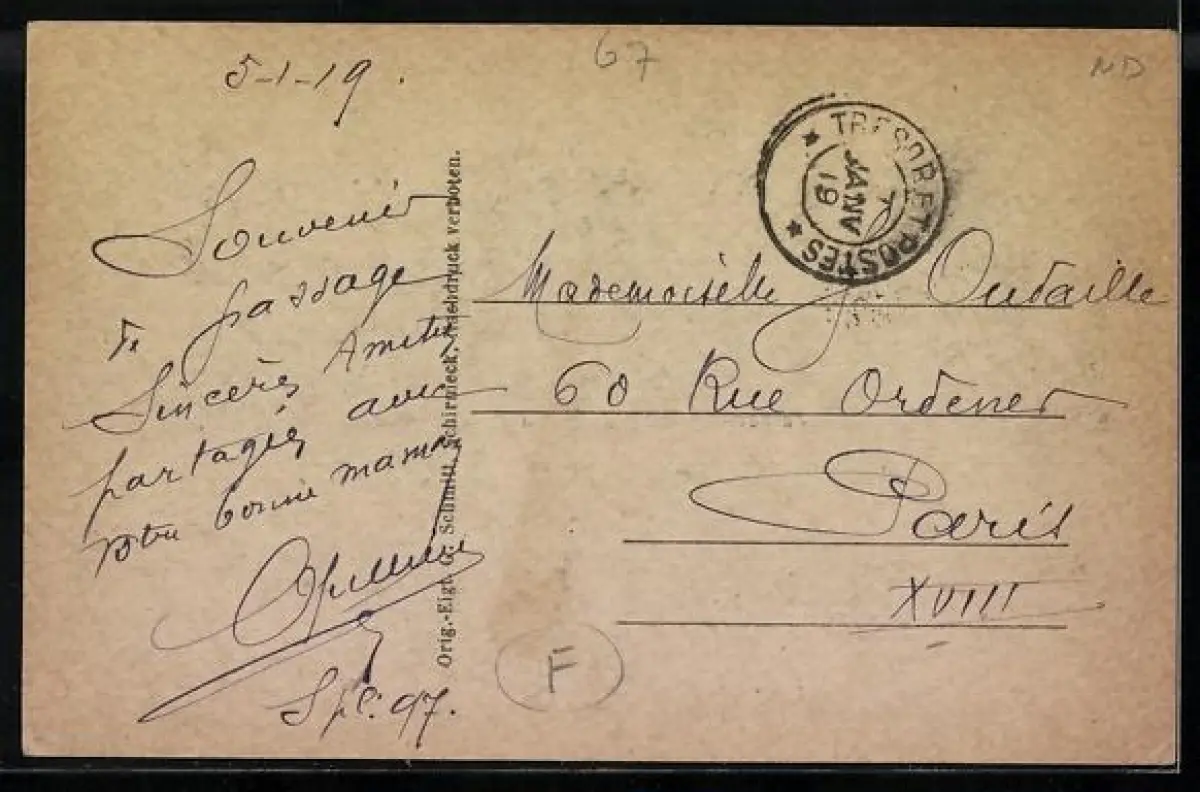 5-1-19.
67
ND
Souvenir
de passage
Sincères Amitiés
partagées avec
votre bonne maman
Sp: 97.
Orig.-Eigt. G. Schmitt, Schirmeck. Nachdruck verboten.
TRESOR ET POSTES
JANV
19
Mademoiselle J Oudaille
60 Rue Ordener
Paris
XVIII
F